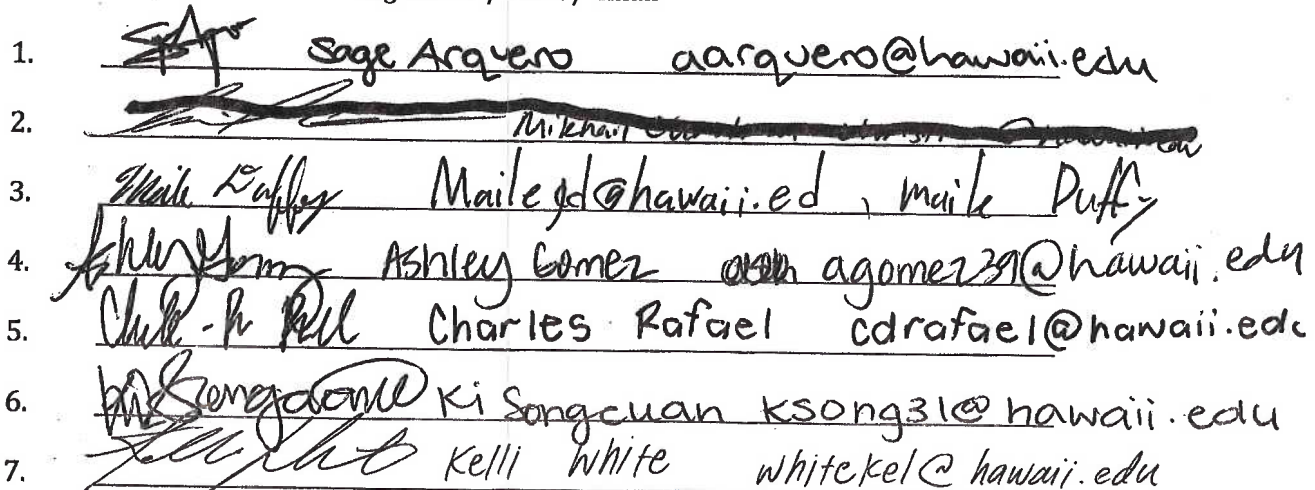 1. Sage Arquero aarquero@hawaii.edu
2. Mikhail
3. Maile Duffy Mailegd@hawaii.ed , Maile Duffy
4. Ashley Gomez agomez39@hawaii.edu
5. Charles Rafael cdrafael@hawaii.edu
6. Ki Songcuan ksong31@hawaii.edu
7. Kelli White whitekel@hawaii.edu